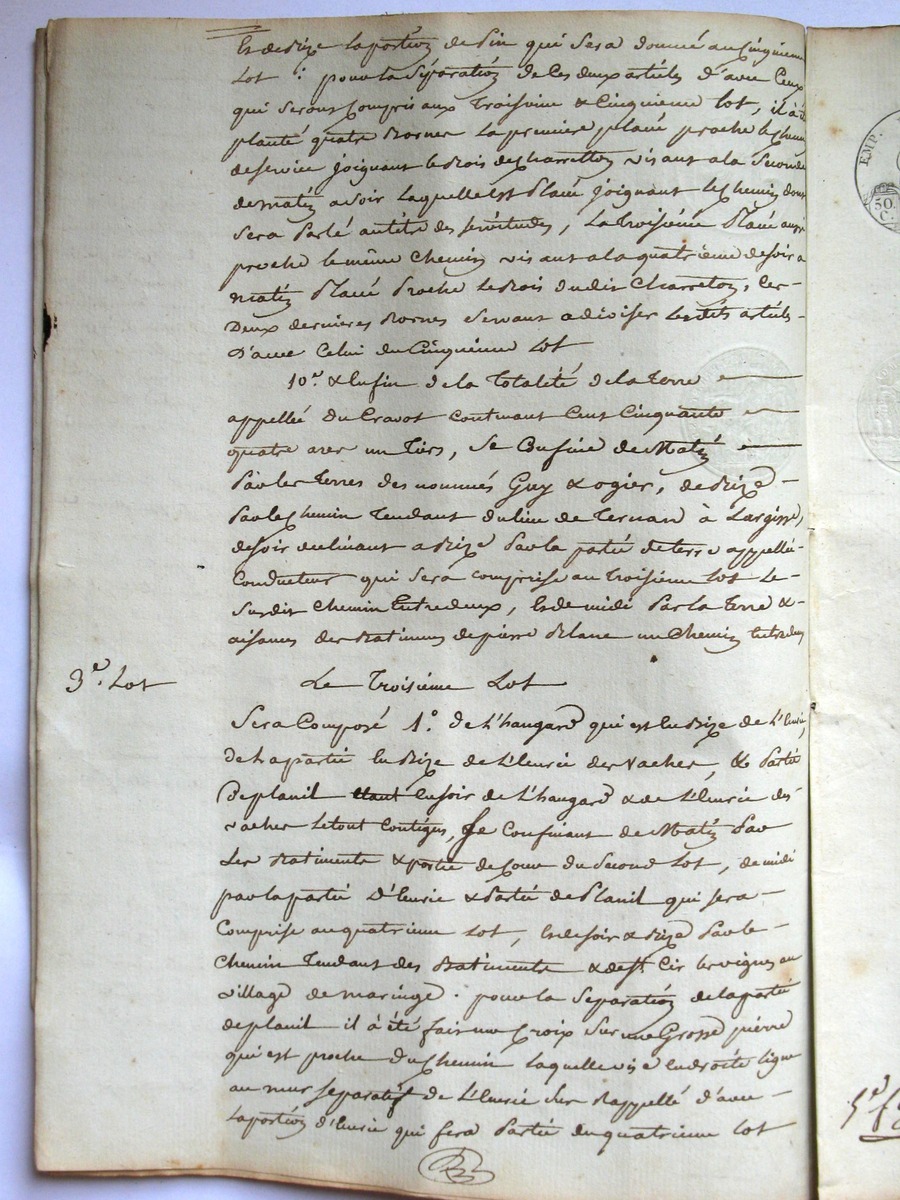 Et de Bize la portion de Pin qui sera donné au Cinquieme
Lot : pour la Séparation de ces deux articles d'avec ceux
qui seront Compris aux Troisieme & Cinquieme lot, il à été
planté quatre Bornes la premiere placé proche le chemin
de service joignant le Bois de Charretton visant a la Seconde
de matin a soir laquelle est Placé joignant le Chemin dont
sera Parlé au titre des servitudes, La Troisiéme Placé aussi
proche le même Chemin visant a la quatrieme de soir a
matin Placé Proche le Bois dudit Charreton, Les-
Deux dernieres Bornes servant a diviser lesdits articles-
D'avec Celui du Cinquieme Lot
10.º & Enfin de la Totalité de la Terre
appellée du Cravot contenant Cent Cinquante
quatre ares un Tiers, Se Confine de Matin
Par les Terres des nommés Guy & ogier, de Bize -
Par le Chemin Tendant du lieu de Ternan à Largisse,
de soir declinant a Bize Par la partie de terre appellée-
Conducteur qui sera comprise au Troisieme lot Le-
Susdit Chemin Entredeux, Et de midi Par la Terre &-
aisances des Batiments de pierre Blanc un Chemin Entredeux
3.e Lot
Le Troisième Lot
Sera Composé 1.º de L'hangard qui est en Bize de L'Ecurie,
de La partie En Bize de L'Ecurie des vaches, & Partie
De planil Etant Ensoir de L'hangard & de L'Ecurie des
vaches Letout Contigus, Se Confinant de Matin Par
Les Batiments & portie de Cour du Second Lot, de midi
par la partie D'Ecurie & Partie de Planil qui sera-
Comprise au quatrieme Lot, Et de soir & Bize Par le-
Chemin Tendant des Batiments & de St Cir les vignes au
village de maringe. pour la Séparation de la partie
de planil il à été fait une Croix Sur une Grosse pierre
qui est proche du Chemin laquelle vise en droite ligne
au mur séparatif de L'Ecurie sus Rappellé d'avec -
La portion d'Ecurie qui sera Partie du quatrieme Lot
EMP.
50.
C.